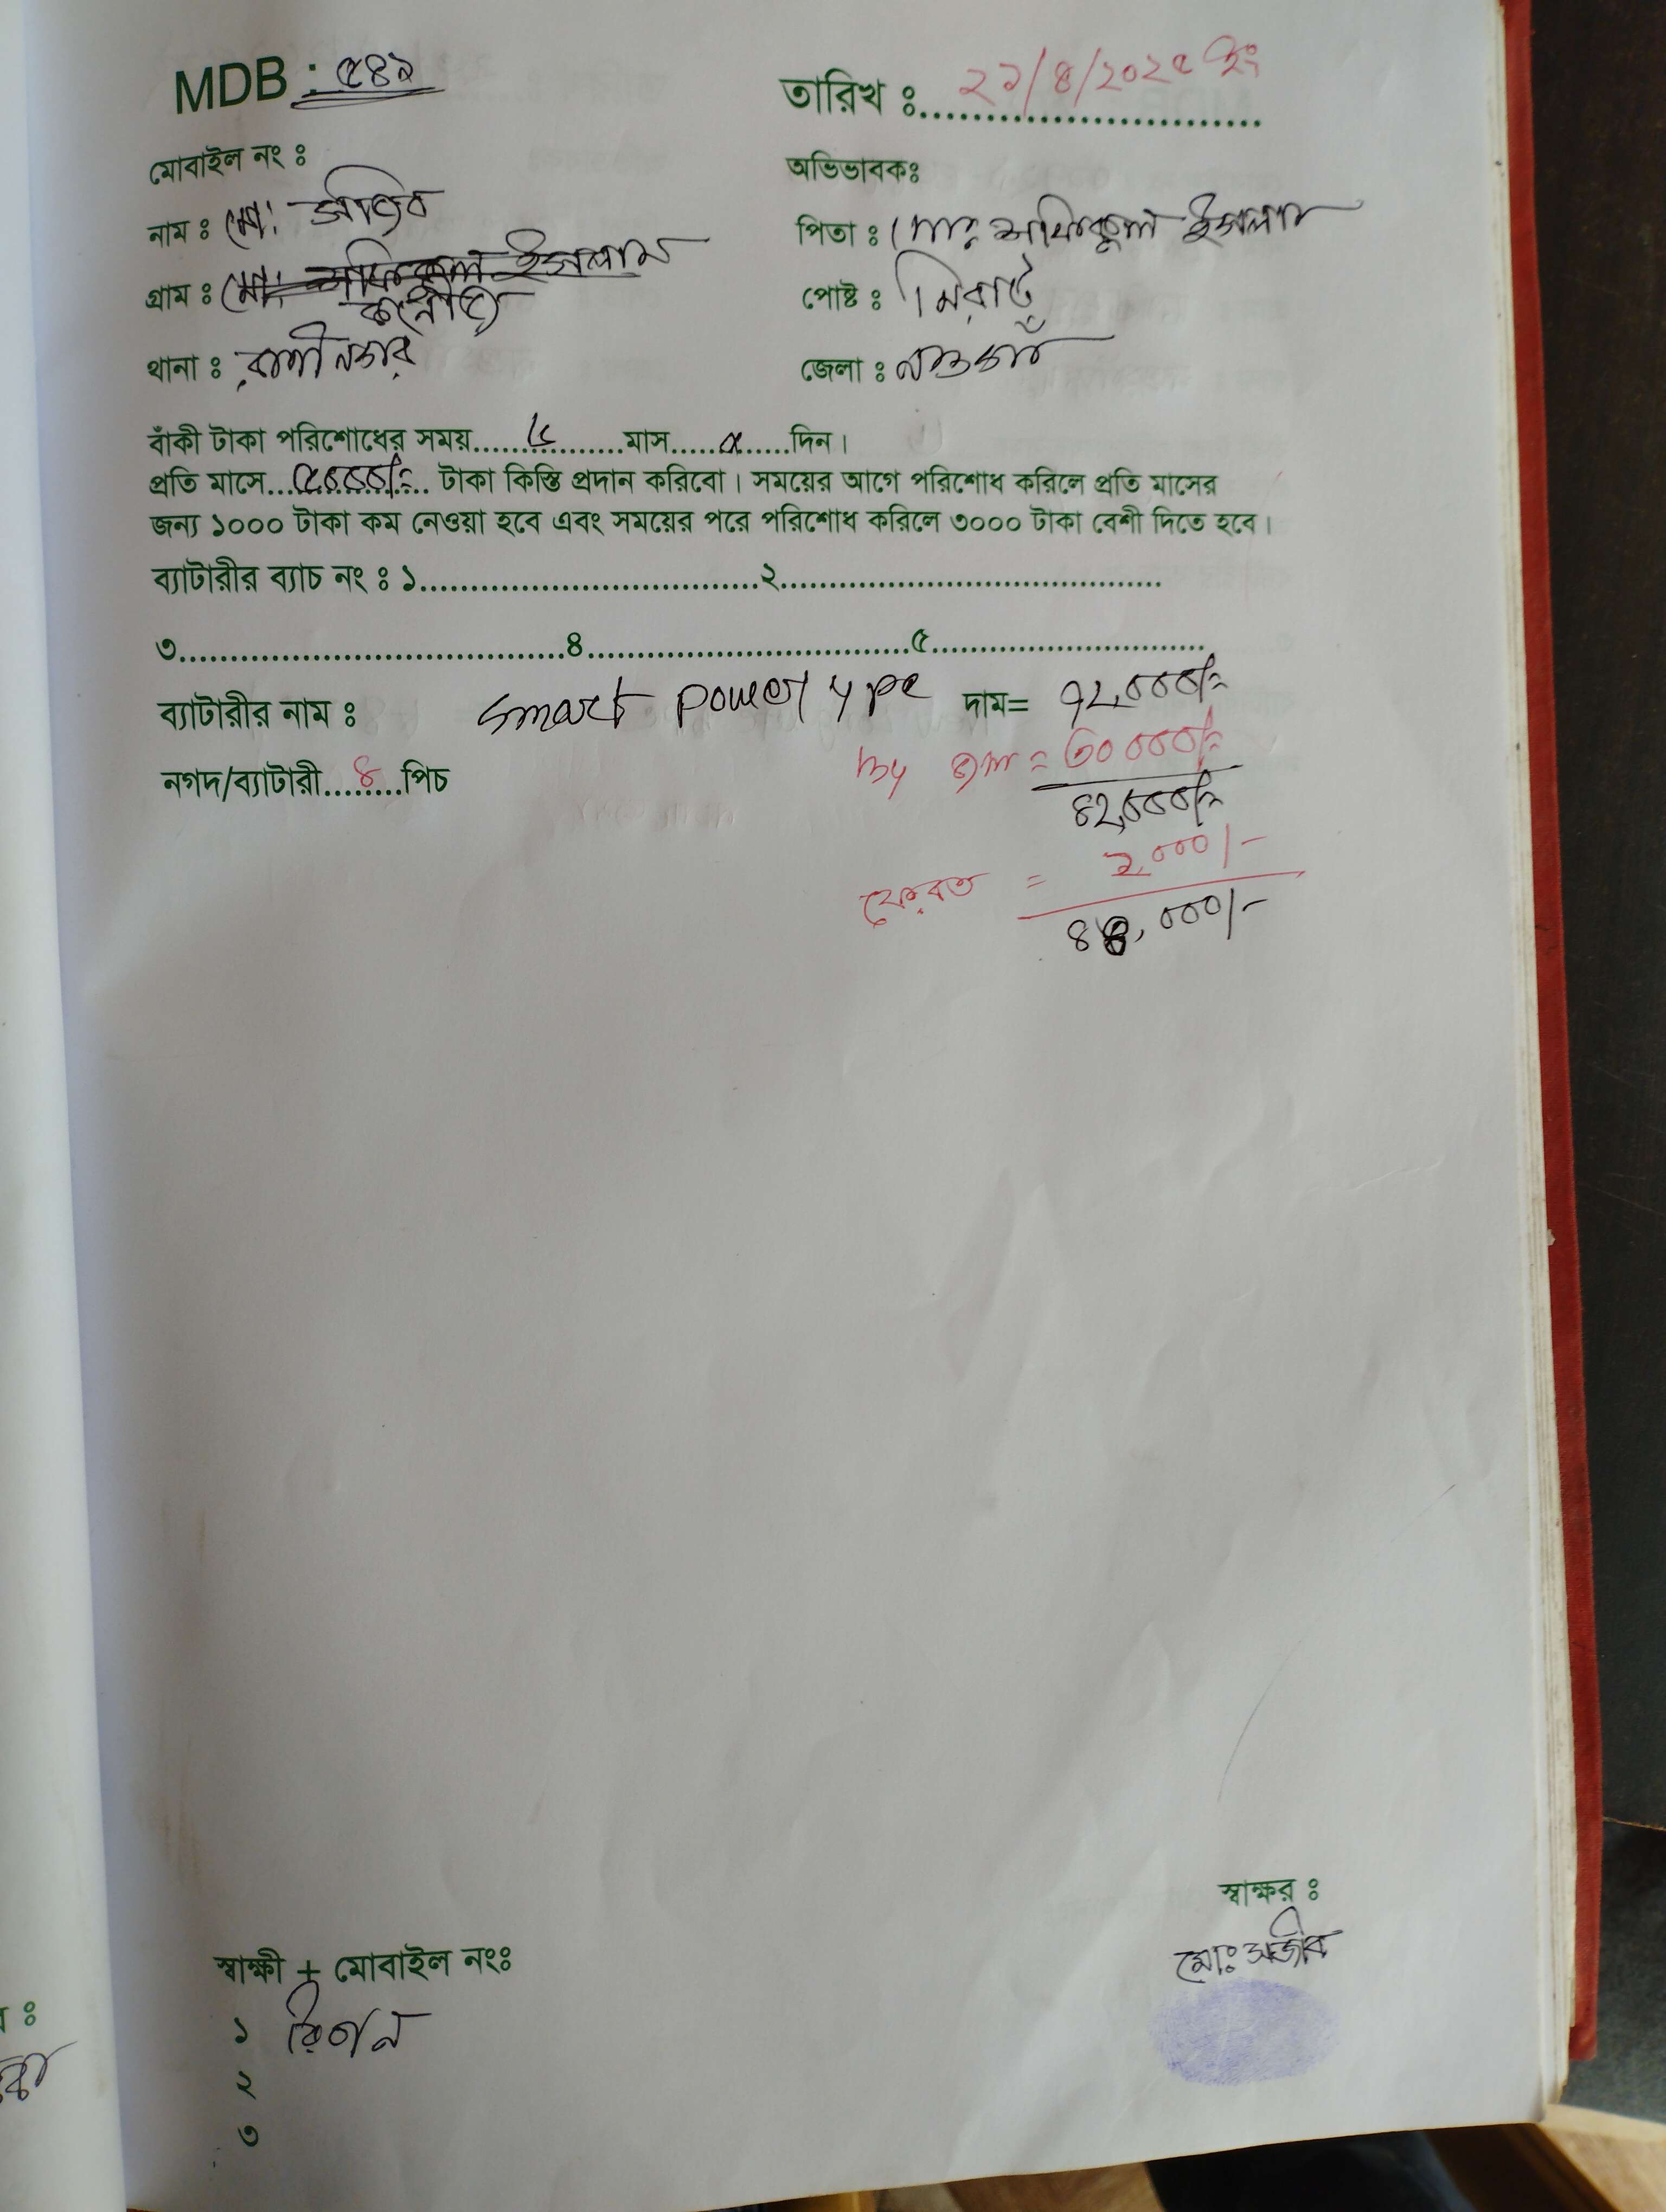 MDB : ৫৪২
তারিখ ঃ 22/8/2025 ইং
মোবাইল নং ঃ
অভিভাবকঃ
নাম ঃ মো:
পিতা ঃ মোঃ ইসলাম
গ্রাম ঃ মো: ইসলাম
পোষ্ট ঃ মিরাট
থানা ঃ রাণীনগর
জেলা ঃ নওগাঁ
বাঁকী টাকা পরিশোধের সময়..................মাস............দিন।
প্রতি মাসে... ৫০০০/= টাকা কিস্তি প্রদান করিবো। সময়ের আগে পরিশোধ করিলে প্রতি মাসের
জন্য ১০০০ টাকা কম নেওয়া হবে এবং সময়ের পরে পরিশোধ করিলে ৩০০০ টাকা বেশী দিতে হবে।
ব্যাটারীর ব্যাচ নং ঃ ১..................................২......................................
৩.......................................৪................................৫...........................
ব্যাটারীর নাম ঃ Smart Power দাম= ৭২,০০০/=
by = ৩০০০০/=
নগদ/ব্যাটারী...৪...পিচ
৪২,০০০/=
ফেরত = ২,০০০/-
,০০০/-
স্বাক্ষর ঃ
মোঃ সজীব
স্বাক্ষী + মোবাইল নংঃ
১
২
৩